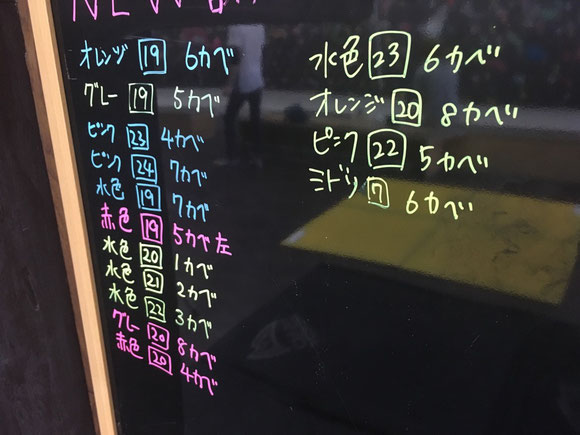 オレンヅ 19 6カベ
グレー 19 5カベ
ピンク 23 4カベ
ピンク 24 7カベ
水色 19 7カベ
赤色 19 5カベ左
水色 20 1カベ
水色 21 2カベ
水色 22 3カベ
グレー 20 8カベ
赤色 20 4カベ
水色 23 6カベ
オレンジ 20 8カベ
ピンク 22 5カベ
ミドリ 7 6カベ